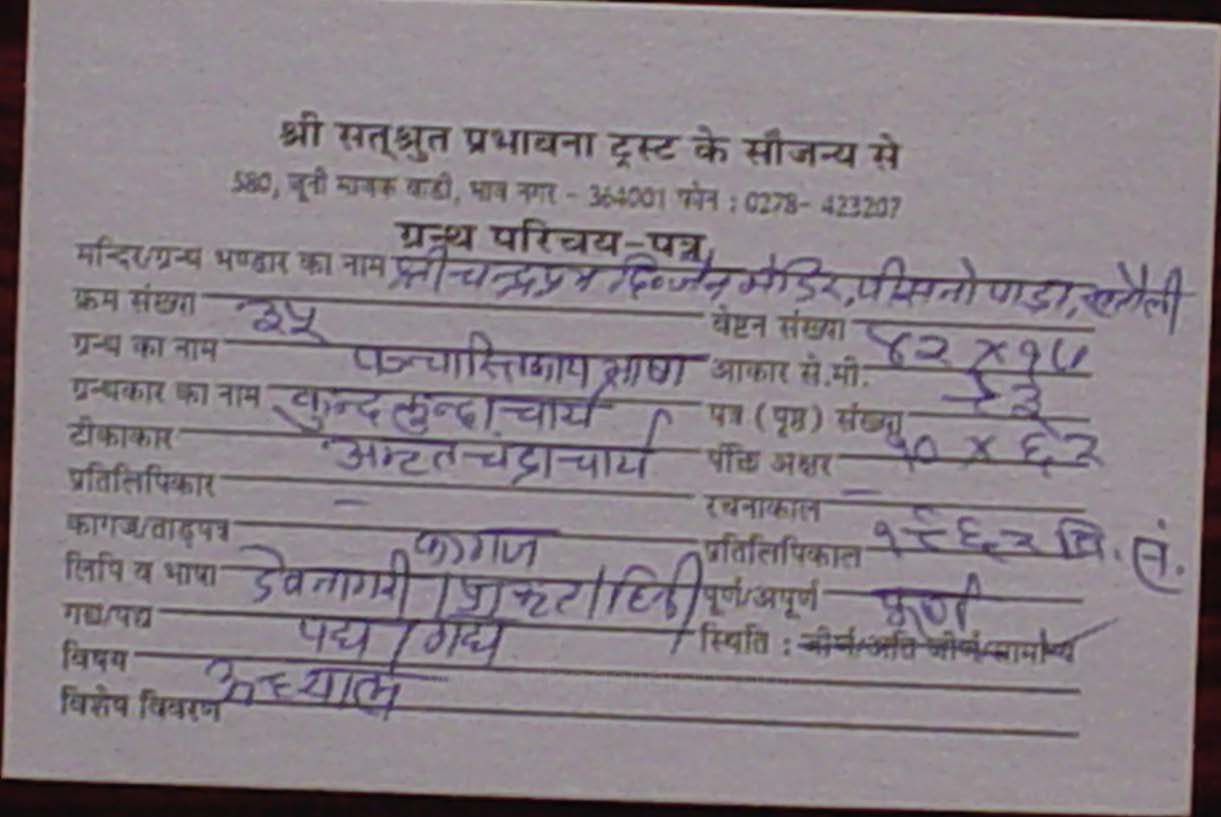 श्री सत्श्रुत प्रभावना ट्रस्ट के सौजन्य से
580, जूनी माणेक वाडी, भाव नगर - 364001 फोन : 0278- 423207
ग्रन्थ परिचय-पत्र
मन्दिर/ग्रन्थ भण्डार का नाम श्री चन्द्रप्रभ दि॰ जैन मंदिर, पीसनो पाड़ा, खतौली
क्रम संख्या ३५ वेष्टन संख्या
ग्रन्थ का नाम पञ्चास्तिकाय भाषा आकार से.मी. ४२ × १५
ग्रन्थकार का नाम कुन्दकुन्दाचार्य पत्र (पृष्ठ) संख्या ९३
टीकाकार अमृतचंद्राचार्य पंक्ति अक्षर १० × ६२
प्रतिलिपिकार – रचनाकाल –
कागज/ताड़पत्र कागज प्रतिलिपिकाल १९६२ वि. सं.
लिपि व भाषा देवनागरी / प्राकृत / हिन्दी पूर्ण/अपूर्ण पूर्ण
गद्य/पद्य पद्य / गद्य स्थिति : जीर्ण/अति जीर्ण/सामान्य
विषय अध्यात्म
विशेष विवरण